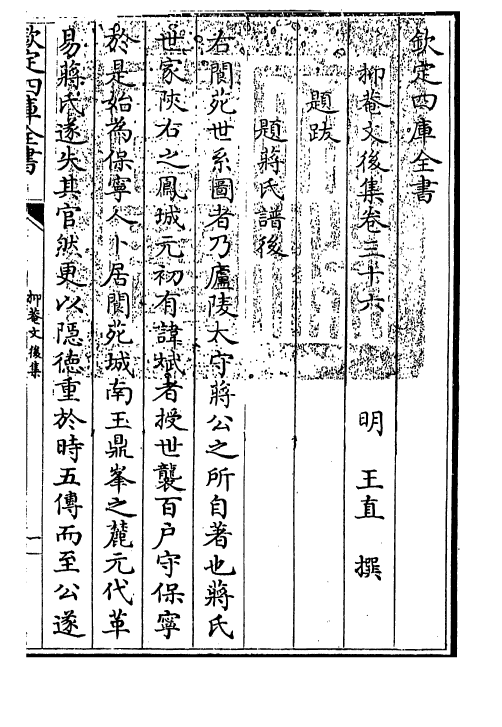 欽定四庫全書
抑菴文後集卷三十六
明 王直 撰
題跋
題蔣氏譜後
右閬苑世系圖者乃廬陵太守蔣公之所自著也蔣氏
世家陜右之鳳城元初有諱斌者授世襲百户守保寧
於是始為保寧人卜居閬苑城南玉鼎峯之麓元代革
易蔣氏遂失其官然更以隱徳重於時五傳而至公遂
欽定四庫全書
抑菴文後集
一